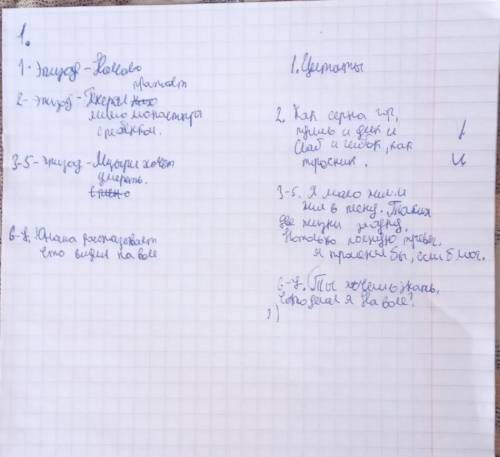 1.
1 - эпизод - Начало
2 - эпизод - Генерал
проезжает
мимо монастыря
с ребёнком.
3-5 - эпизод - Мцыри хочет
умереть.
6-7. Юноша рассказывает
что видел на воле
1. Цитаты
2. Как серна гор,
пуглив и дик и
слаб и гибок, как
тросник.
3-5. Я мало жил и
жил в плену. Таких
две жизни за одну,
Но только полную тревог
Я променял бы, если б мог.
6-7. (Ты хочешь знать,
что делал я На воле?